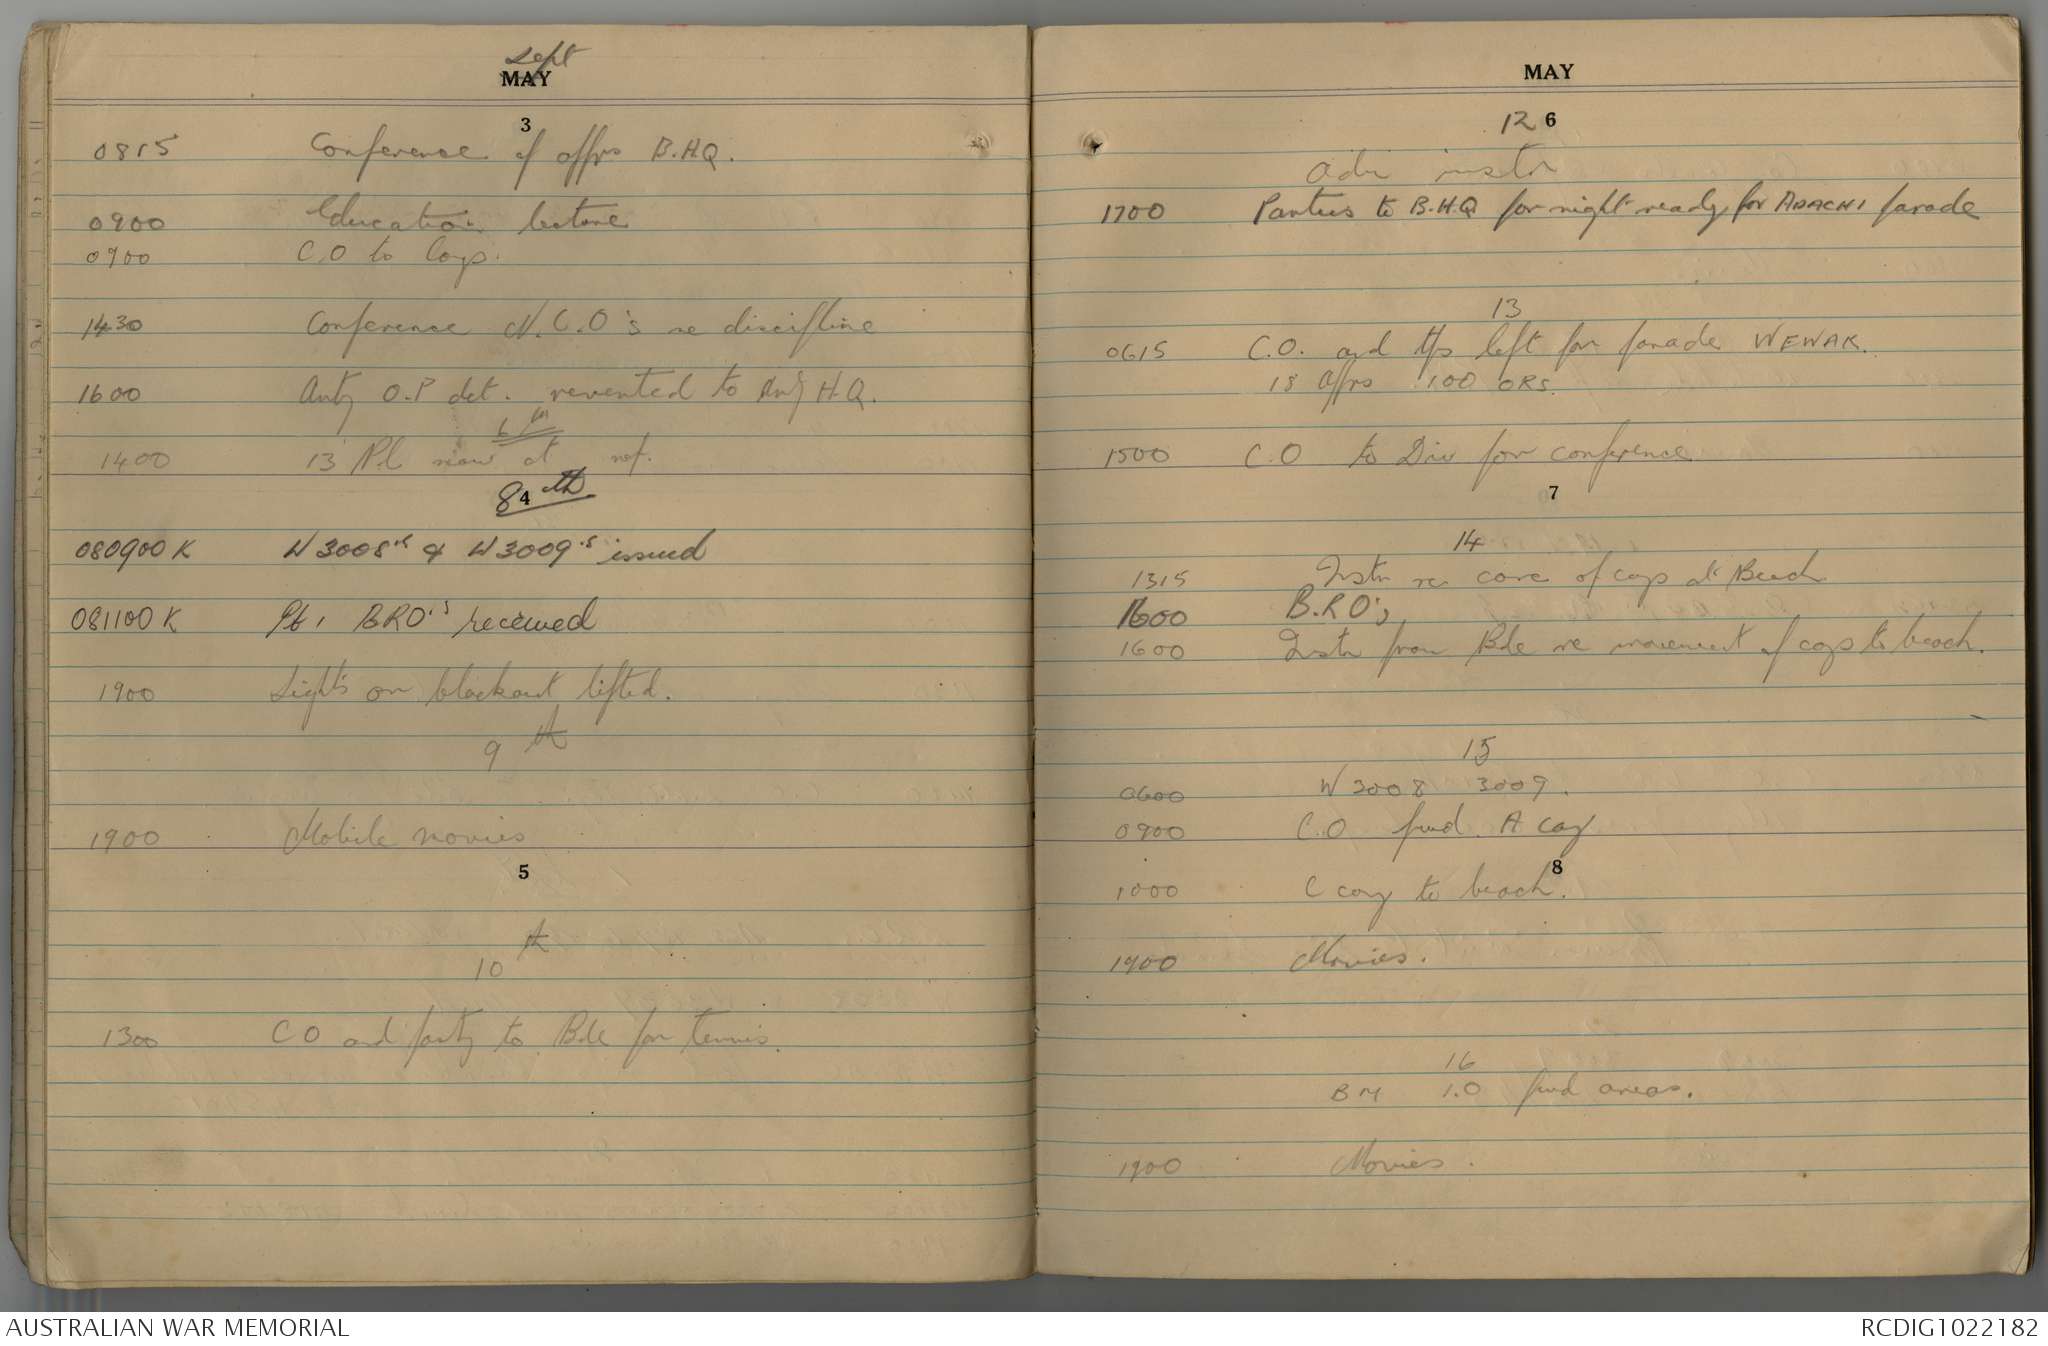 Sept
MAY
3
0815 Conference of offrs B.H.Q.
0900 Education lecture
0900 C.O to Coys.
1430 Conference N.C.O's re discipline
1600 Arty O.P det. reverted to Arty H.Q.
6th
1400 13 Pl now at ref.
4
8th
080900K W3008's & W3009's issued
081100K Pt 1 BRO's received
1900 Lights on blackout lifted.
9th
1900 Mobile movies
5
10th
1300 C O and party to Bde for tennis.
MAY
12 6
Adm instr
1700 Parties to B.H.Q for night ready for ADACHI parade
13
0615 C.O. and tps left for parade WEWAK.
18 offrs 100 ORS.
1500 C.O to Div for conference
7
14
1315 Instr re care of coys at Beach
1600 B.R.O's
1600 Instr from Bde re movement of coys to beach.
15
0600 W3008 3009.
0900 C.O fwd. A coy
8
1000 C coy to beach.
1900 Movies.
16
BM I.O fwd areas.
1900 Movies.
AUSTRALIAN WAR MEMORIAL
RCDIG1022182